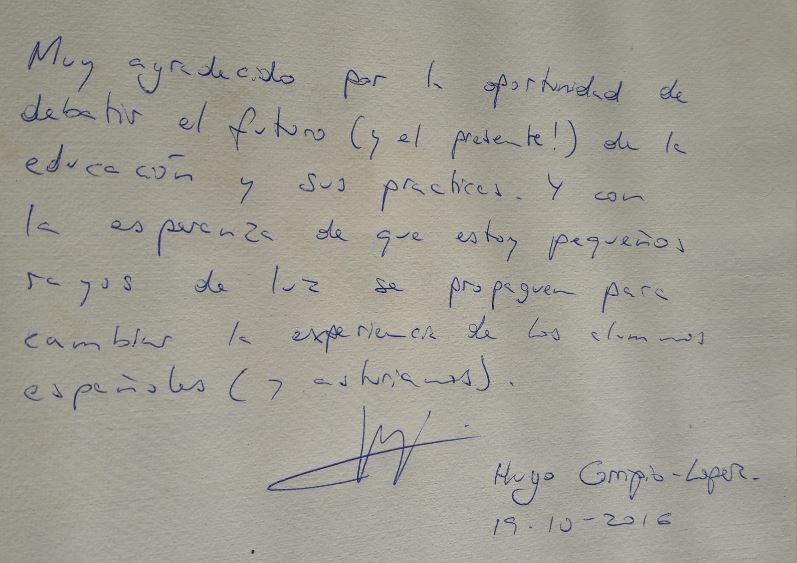 Muy agradecido por la oportunidad de
debatir el futuro (y el presente!) de la
educación y sus practices. Y con
la esperanza de que estoy pequeños
rayos de luz se propaguen para
cambiar la experiencia de los alumnos
españoles (y asturianos).
Hugo -Lopez.
19-10-2016